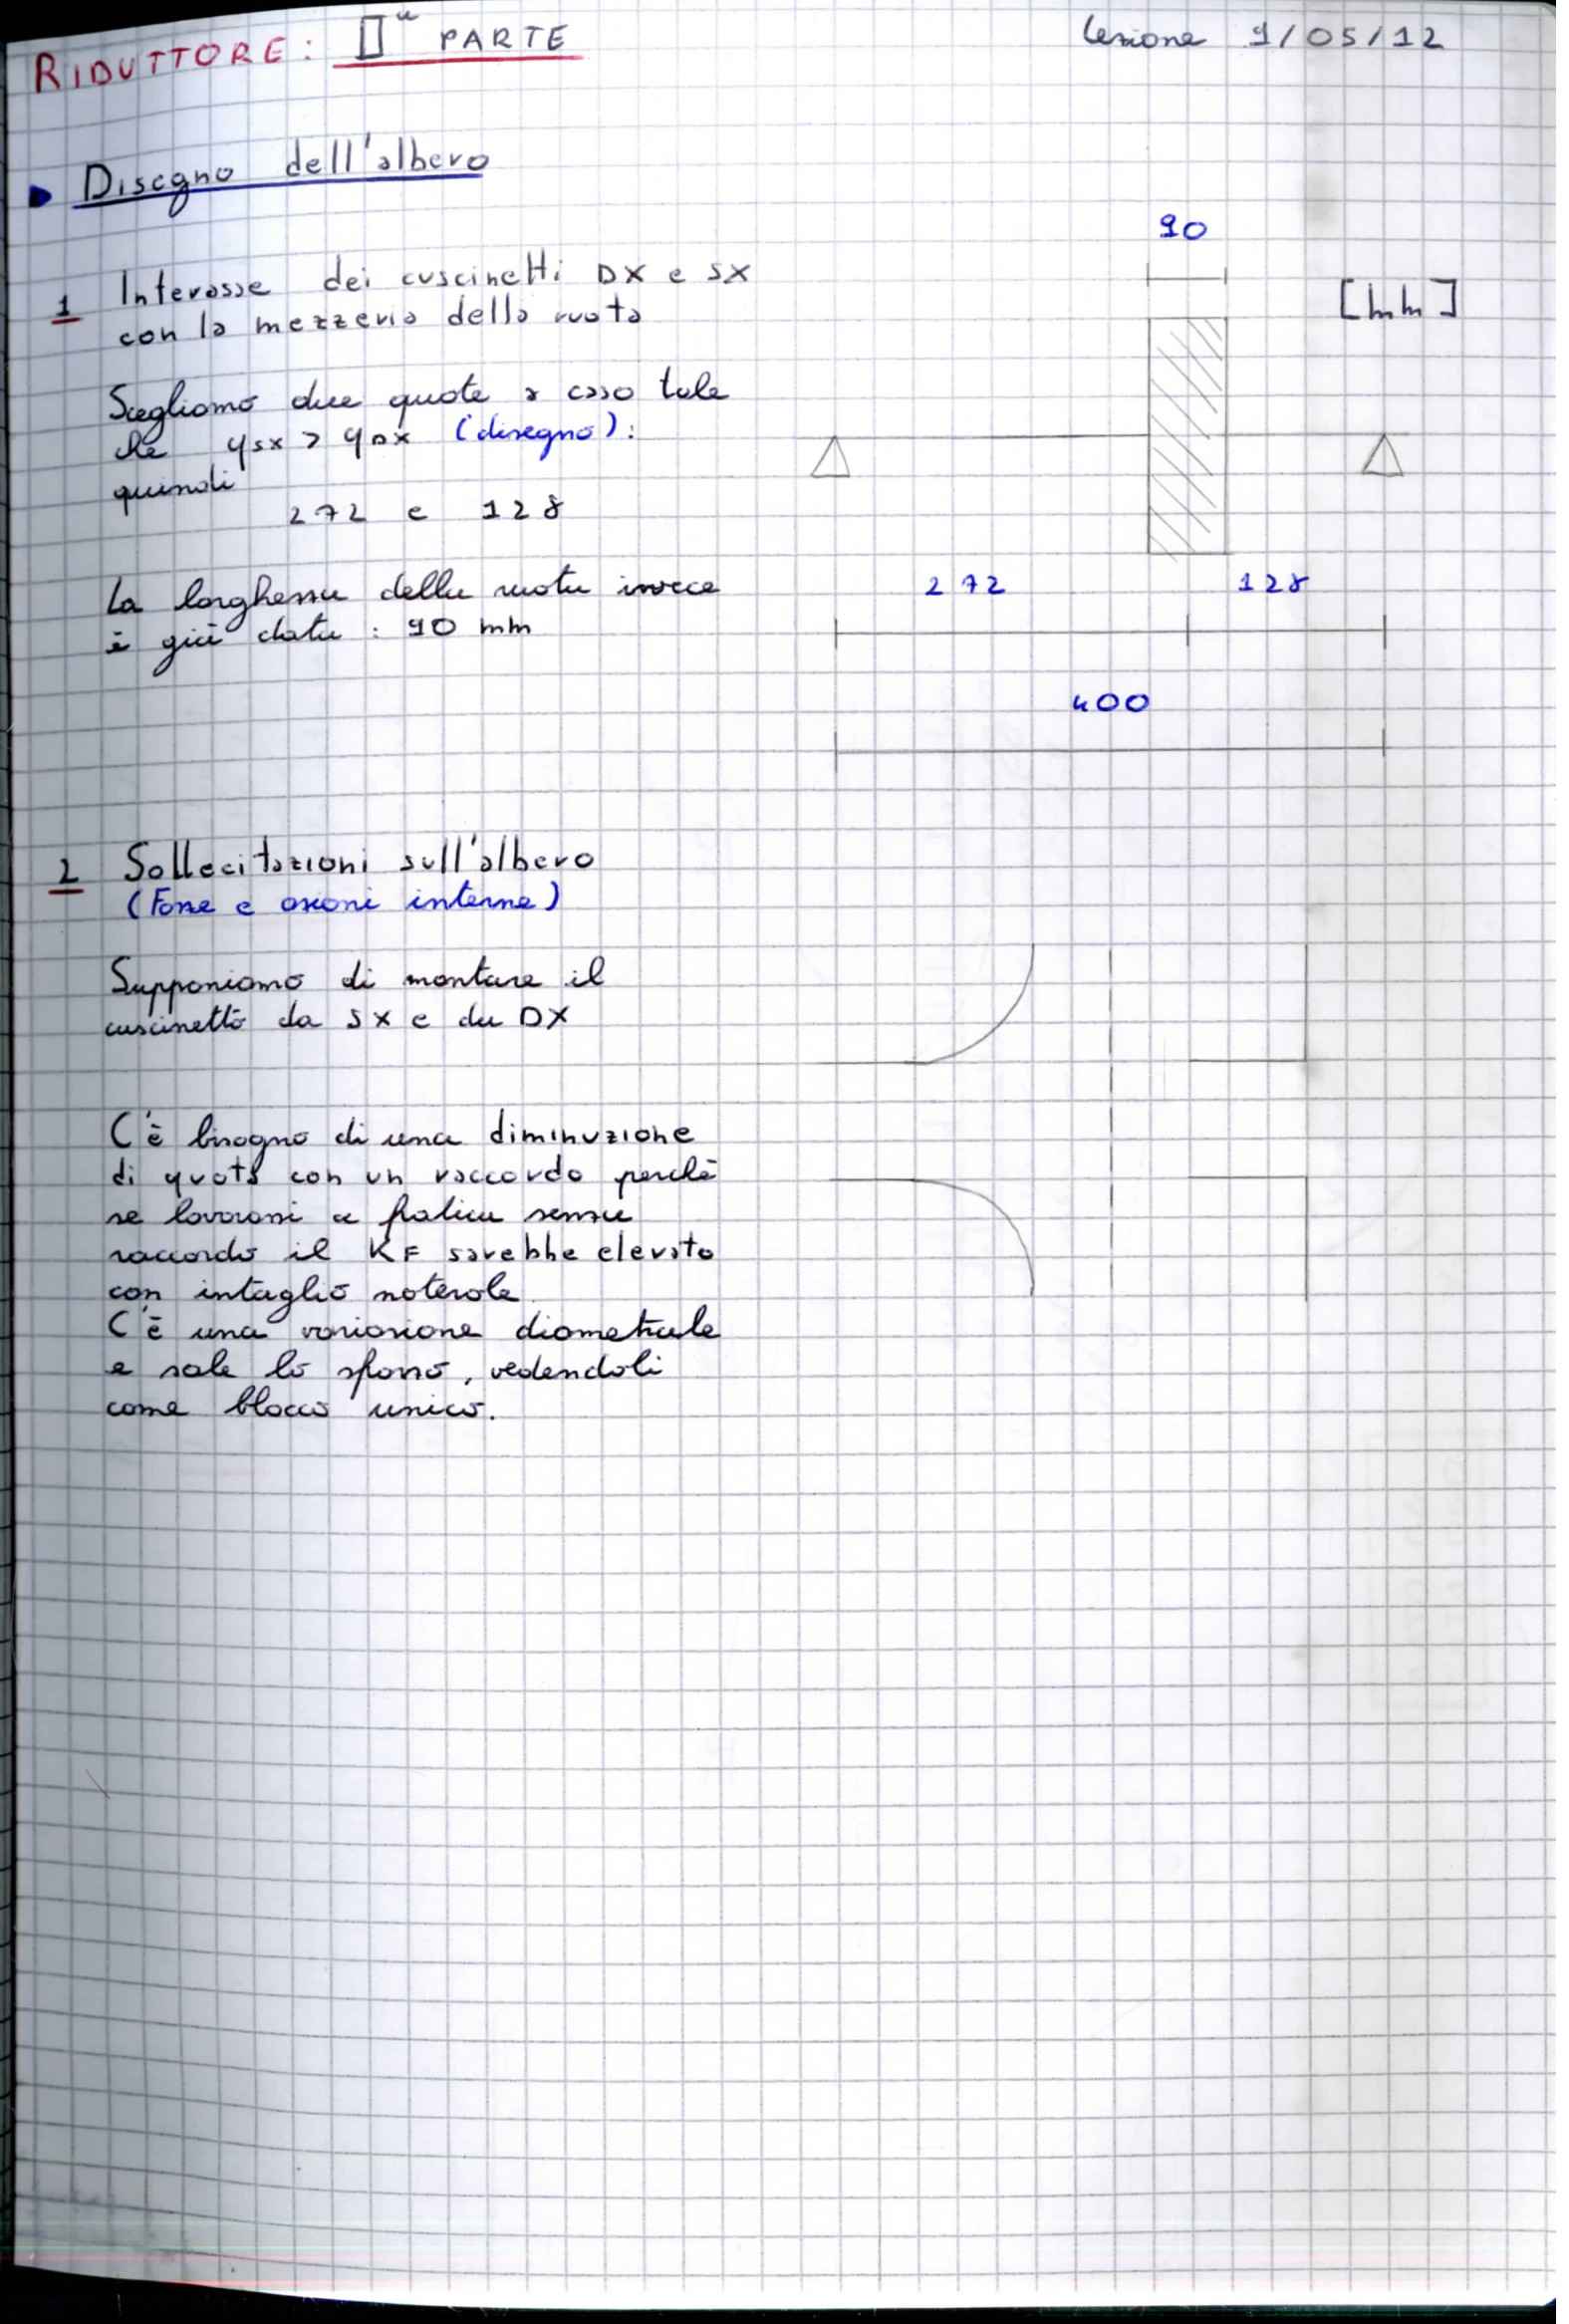 RIDUTTORE: IIª PARTE
Lezione 9/05/12
Disegno dell'albero
1 Interasse dei cuscinetti DX e SX
con la mezzeria della ruota
Scegliamo due quote a caso tale
che qsx > qDX (disegno):
quindi
272 e 128
La larghezza della ruota invece
è già data : 90 mm
90
[mm]
272 128
400
2 Sollecitazioni sull'albero
(Forze e azioni interne)
Supponiamo di montare il
cuscinetto da SX e da DX
C'è bisogno di una diminuzione
di quota con un raccordo perchè
se lavorassi a fatica senza
raccordo il KF sarebbe elevato
con intaglio notevole.
C'è una variazione diametrale
e sale lo sforzo, vedendoli
come blocco unico.